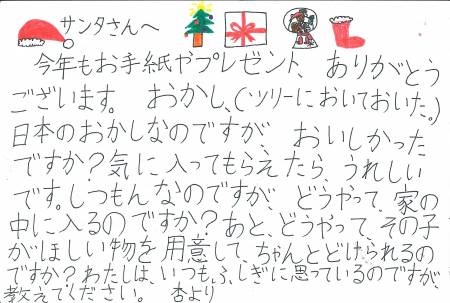 サンタさんへ
今年もお手紙やプレゼント、ありがとう
ございます。おかし、(ツリーにおいておいた。)
日本のおかしなのですが、おいしかった
ですか？気に入ってもらえたら、うれしい
です。しつもんなのですが、どうやって、家の
中に入るのですか？あと、どうやって、その子
がほしい物を用意して、ちゃんとどけられるの
ですか？わたしは、いつも、ふしぎに思っているのですが、
教えてください。 杏より